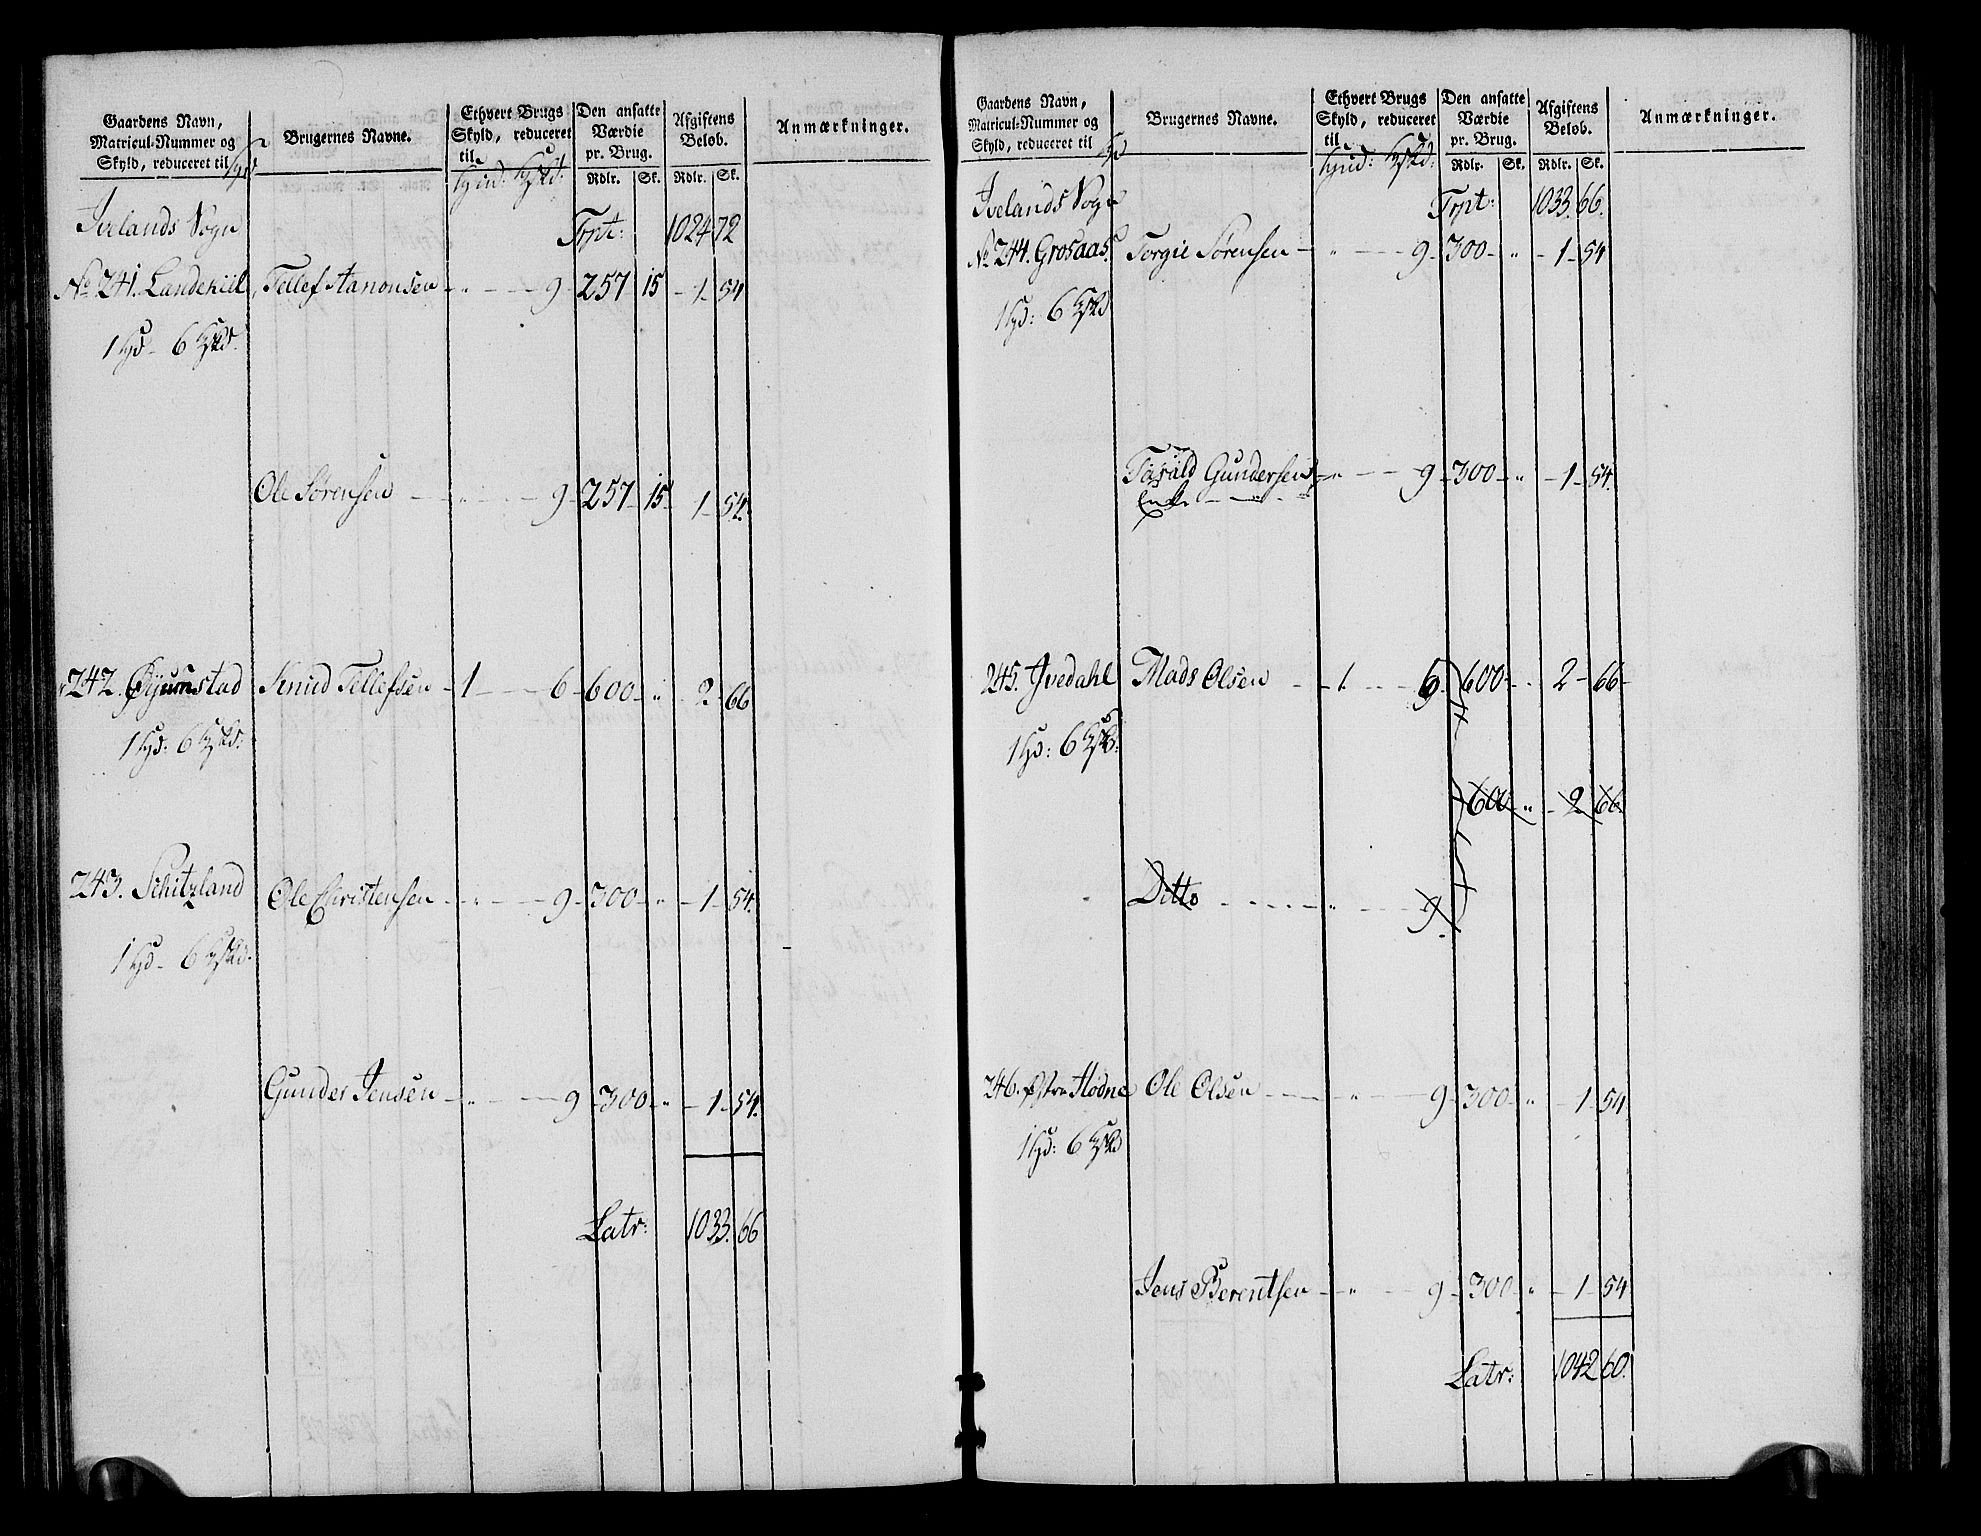 Gaardens Navn, Matricul-Nummer og Skyld, reduceret til
Brugernes Navne.
Ethvert Brugs Skyld, reduceret til
Den ansatte Værdie pr. Brug.
Rdlr. Sk.
Afgiftens Beløb.
Rdlr. Sk.
Anmærkninger.
Ivelands Sogn Trpt: 1024 72
No 241. Landehiil, Tellef Aanonsen - " - 9 - 257 15 - 1 - 54
1 6
Ole Sørensen - " - 9 - 257 - 15 - 1 - 54.
242. Øyumstad Knud Tellefsen - 1 - 6 - 600 - " - 2 - 66
1 6
243. Schitzland Ole Christensen - " - 9 - 300 - " - 1 - 54.
1 6
Gunder Jensen - " - 9 - 300 - " - 1 - 54.
Latr: 1033. 66
Gaardens Navn, Matricul-Nummer og Skyld, reduceret til
Brugernes Navne.
Ethvert Brugs Skyld, reduceret til
Den ansatte Værdie pr. Brug.
Rdlr. Sk.
Afgiftens Beløb.
Rdlr. Sk.
Anmærkninger.
Ivelands Sogn Trpt: 1033. 66.
No 244. Grosaas. Torgie Sørensen - " - 9 - 300 - " - 1 - 54
1 6
Tarald Gundersens - " - 9 - 300 - " - 1 - 54.
Enke
245. Ivedahl Mads Olsen - 1. - 6 600 - " 2 - 66 -
1 6
600 - " - 2 66
Ditto - " - 9.
246. Østre Flødne Ole Olsen - " - 9 - 300 - " - 1 - 54
1 6
Jens Berentsen - " - 9 - 300 - " - 1 - 54
Latr: 1042 60.